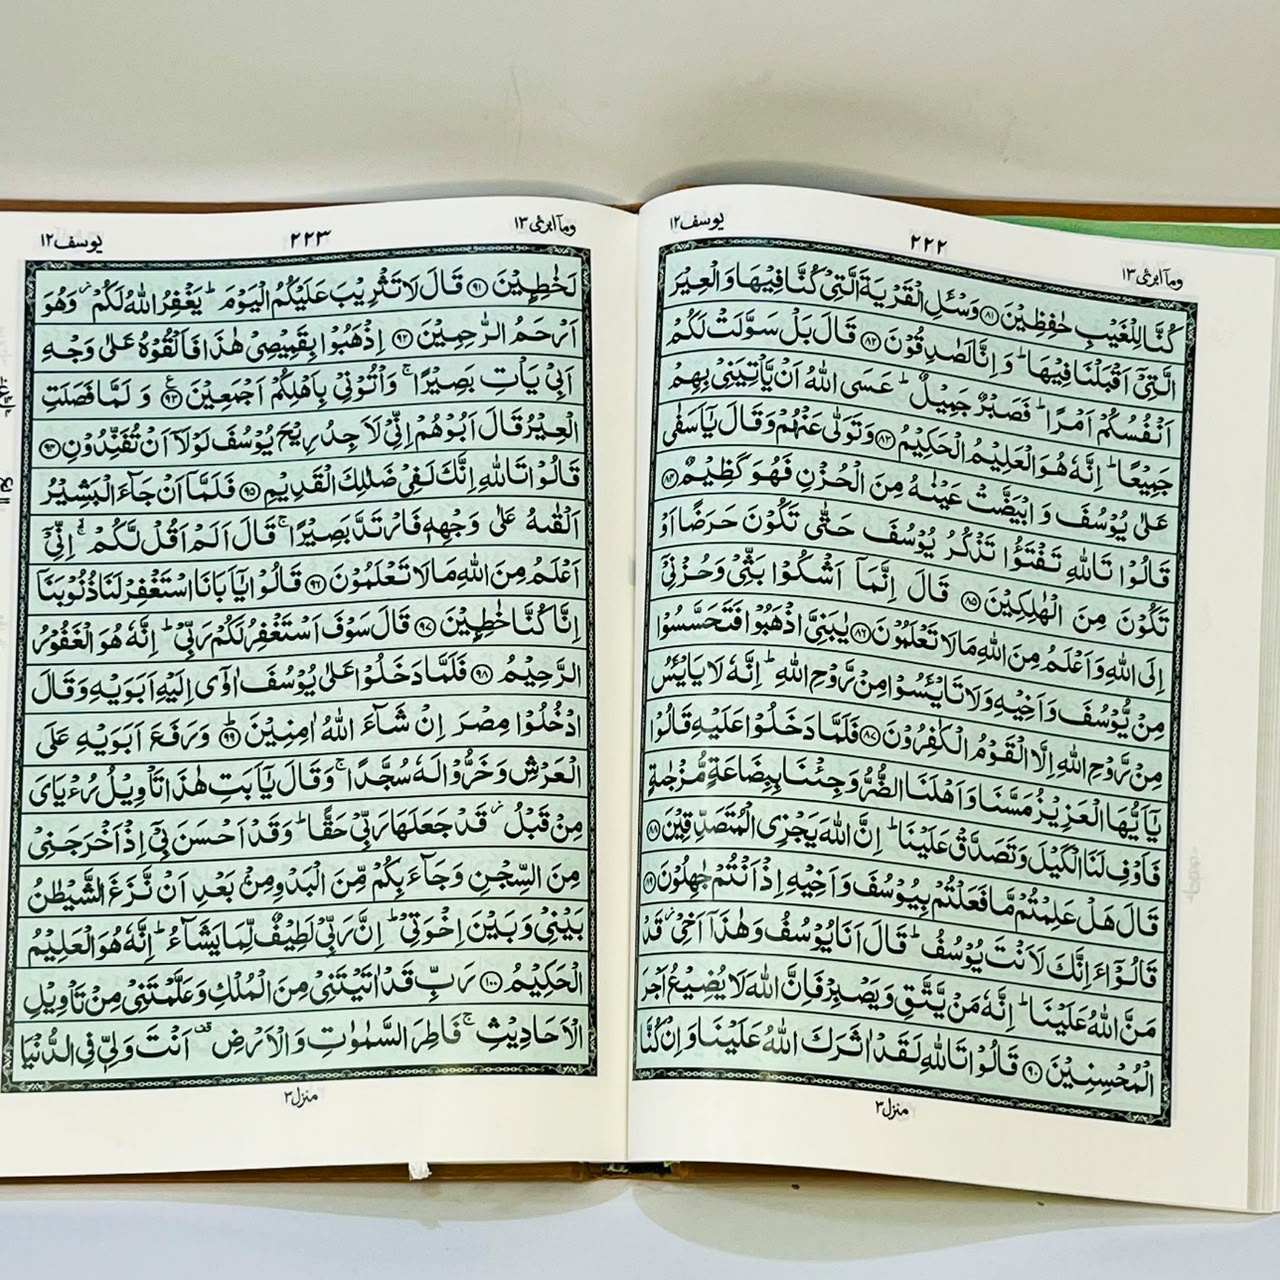 یوسف ۱۲
۲۲۲
ومآ ابرئ ۱۳
كُنَّا لِلْغَيْبِ حٰفِظِيْنَ ۸۱ وَسْـَٔلِ الْقَرْيَةَ الَّتِيْ كُنَّا فِيْهَا وَالْعِيْرَ
الَّتِيْٓ اَقْبَلْنَا فِيْهَا ؕ وَاِنَّا لَصٰدِقُوْنَ ۸۲ قَالَ بَلْ سَوَّلَتْ لَكُمْ
اَنْفُسُكُمْ اَمْرًا ؕ فَصَبْرٌ جَمِيْلٌ ؕ عَسَى اللّٰهُ اَنْ يَّاْتِيَنِيْ بِهِمْ
جَمِيْعًا ؕ اِنَّهٗ هُوَ الْعَلِيْمُ الْحَكِيْمُ ۸۳ وَتَوَلّٰى عَنْهُمْ وَقَالَ يٰٓاَسَفٰى
عَلٰى يُوْسُفَ وَابْيَضَّتْ عَيْنٰهُ مِنَ الْحُزْنِ فَهُوَ كَظِيْمٌ ۸۴
قَالُوْا تَاللّٰهِ تَفْتَؤُا تَذْكُرُ يُوْسُفَ حَتّٰى تَكُوْنَ حَرَضًا اَوْ
تَكُوْنَ مِنَ الْهٰلِكِيْنَ ۸۵ قَالَ اِنَّمَآ اَشْكُوْا بَثِّيْ وَحُزْنِيْٓ
اِلَى اللّٰهِ وَاَعْلَمُ مِنَ اللّٰهِ مَا لَا تَعْلَمُوْنَ ۸۶ يٰبَنِيَّ اذْهَبُوْا فَتَحَسَّسُوْا
مِنْ يُّوْسُفَ وَاَخِيْهِ وَلَا تَايْـَٔسُوْا مِنْ رَّوْحِ اللّٰهِ ؕ اِنَّهٗ لَا يَايْـَٔسُ
مِنْ رَّوْحِ اللّٰهِ اِلَّا الْقَوْمُ الْكٰفِرُوْنَ ۸۷ فَلَمَّا دَخَلُوْا عَلَيْهِ قَالُوْا
يٰٓاَيُّهَا الْعَزِيْزُ مَسَّنَا وَاَهْلَنَا الضُّرُّ وَجِئْنَا بِبِضَاعَةٍ مُّزْجٰىةٍ
فَاَوْفِ لَنَا الْكَيْلَ وَتَصَدَّقْ عَلَيْنَا ؕ اِنَّ اللّٰهَ يَجْزِي الْمُتَصَدِّقِيْنَ ۸۸
قَالَ هَلْ عَلِمْتُمْ مَّا فَعَلْتُمْ بِيُوْسُفَ وَاَخِيْهِ اِذْ اَنْتُمْ جٰهِلُوْنَ ۸۹
قَالُوْٓا ءَاِنَّكَ لَاَنْتَ يُوْسُفُ ؕ قَالَ اَنَا يُوْسُفُ وَهٰذَآ اَخِيْ ز قَدْ
مَنَّ اللّٰهُ عَلَيْنَا ؕ اِنَّهٗ مَنْ يَّتَّقِ وَيَصْبِرْ فَاِنَّ اللّٰهَ لَا يُضِيْعُ اَجْرَ
الْمُحْسِنِيْنَ ۹۰ قَالُوْا تَاللّٰهِ لَقَدْ اٰثَرَكَ اللّٰهُ عَلَيْنَا وَاِنْ كُنَّا
منزل ۳
ومآ ابرئ ۱۳
۲۲۳
یوسف ۱۲
لَخٰطِـِٕيْنَ ۹۱ قَالَ لَا تَثْرِيْبَ عَلَيْكُمُ الْيَوْمَ ؕ يَغْفِرُ اللّٰهُ لَكُمْ ز وَهُوَ
اَرْحَمُ الرّٰحِمِيْنَ ۹۲ اِذْهَبُوْا بِقَمِيْصِيْ هٰذَا فَاَلْقُوْهُ عَلٰى وَجْهِ
اَبِيْ يَاْتِ بَصِيْرًا ۚ وَاْتُوْنِيْ بِاَهْلِكُمْ اَجْمَعِيْنَ ۹۳ وَلَمَّا فَصَلَتِ
الْعِيْرُ قَالَ اَبُوْهُمْ اِنِّيْ لَاَجِدُ رِيْحَ يُوْسُفَ لَوْلَآ اَنْ تُفَنِّدُوْنِ ۹۴
قَالُوْا تَاللّٰهِ اِنَّكَ لَفِيْ ضَلٰلِكَ الْقَدِيْمِ ۹۵ فَلَمَّآ اَنْ جَآءَ الْبَشِيْرُ
اَلْقٰىهُ عَلٰى وَجْهِهٖ فَارْتَدَّ بَصِيْرًا ۚ قَالَ اَلَمْ اَقُلْ لَّكُمْ ۚ اِنِّيْٓ
اَعْلَمُ مِنَ اللّٰهِ مَا لَا تَعْلَمُوْنَ ۹۶ قَالُوْا يٰٓاَبَانَا اسْتَغْفِرْ لَنَا ذُنُوْبَنَآ
اِنَّا كُنَّا خٰطِـِٕيْنَ ۹۷ قَالَ سَوْفَ اَسْتَغْفِرُ لَكُمْ رَبِّيْ ؕ اِنَّهٗ هُوَ الْغَفُوْرُ
الرَّحِيْمُ ۹۸ فَلَمَّا دَخَلُوْا عَلٰى يُوْسُفَ اٰوٰٓى اِلَيْهِ اَبَوَيْهِ وَقَالَ
ادْخُلُوْا مِصْرَ اِنْ شَآءَ اللّٰهُ اٰمِنِيْنَ ؕ ۹۹ وَرَفَعَ اَبَوَيْهِ عَلَى
الْعَرْشِ وَخَرُّوْا لَهٗ سُجَّدًا ۚ وَقَالَ يٰٓاَبَتِ هٰذَا تَاْوِيْلُ رُءْيَايَ
مِنْ قَبْلُ ز قَدْ جَعَلَهَا رَبِّيْ حَقًّا ؕ وَقَدْ اَحْسَنَ بِيْٓ اِذْ اَخْرَجَنِيْ
مِنَ السِّجْنِ وَجَآءَ بِكُمْ مِّنَ الْبَدْوِ مِنْۢ بَعْدِ اَنْ نَّزَغَ الشَّيْطٰنُ
بَيْنِيْ وَبَيْنَ اِخْوَتِيْ ؕ اِنَّ رَبِّيْ لَطِيْفٌ لِّمَا يَشَآءُ ؕ اِنَّهٗ هُوَ الْعَلِيْمُ
الْحَكِيْمُ ۱۰۰ رَبِّ قَدْ اٰتَيْتَنِيْ مِنَ الْمُلْكِ وَعَلَّمْتَنِيْ مِنْ تَاْوِيْلِ
الْاَحَادِيْثِ ۚ فَاطِرَ السَّمٰوٰتِ وَالْاَرْضِ قف اَنْتَ وَلِيّٖ فِي الدُّنْيَا
منزل ۳